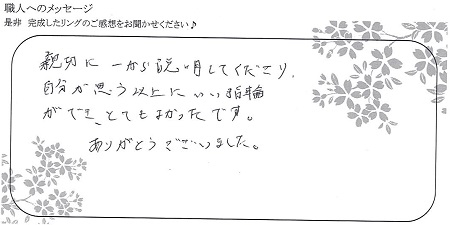 職人へのメッセージ
是非 完成したリングのご感想をお聞かせください♪
親切に 一から説明してくださり、
自分が思う以上にいい指輪
ができ、とてもよかったです。
ありがとうございました。